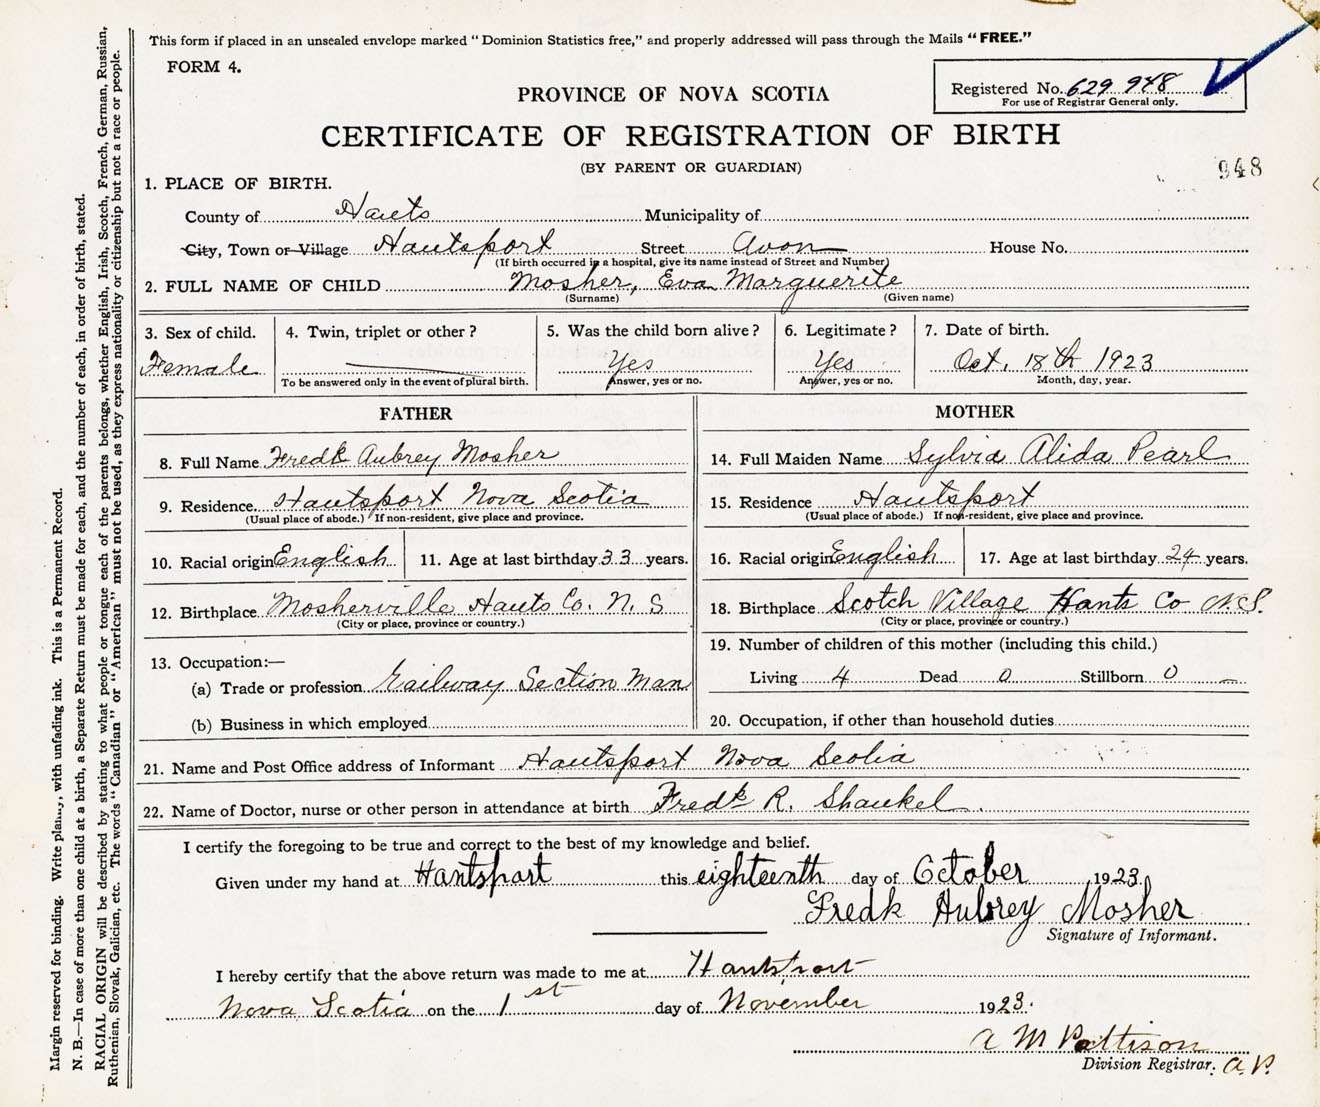 This form if placed in an unsealed envelope marked "Dominion Statistics free," and properly addressed will pass through the Mails "FREE."
FORM 4.
Registered No. 629 948
For use of Registrar General only.
PROVINCE OF NOVA SCOTIA
CERTIFICATE OF REGISTRATION OF BIRTH
(BY PARENT OR GUARDIAN)
948
1. PLACE OF BIRTH.
County of Hants Municipality of
City, Town or Village Hantsport Street Avon House No.
(If birth occurred in a hospital, give its name instead of Street and Number)
2. FULL NAME OF CHILD Mosher, Eva Marguerite
(Surname) (Given name)
3. Sex of child. 4. Twin, triplet or other? 5. Was the child born alive? 6. Legitimate? 7. Date of birth.
Female Yes Yes Oct. 18th 1923
To be answered only in the event of plural birth. Answer, yes or no. Answer, yes or no. Month, day, year.
FATHER
8. Full Name Fredk Aubrey Mosher
9. Residence Hantsport Nova Scotia
(Usual place of abode.) If non-resident, give place and province.
10. Racial origin English 11. Age at last birthday 33 years.
12. Birthplace Mosherville Hants Co. N. S
(City or place, province or country.)
13. Occupation:—
(a) Trade or profession Railway Section Man
(b) Business in which employed
MOTHER
14. Full Maiden Name Sylvia Alida Pearl
15. Residence Hantsport
(Usual place of abode.) If non-resident, give place and province.
16. Racial origin English 17. Age at last birthday 24 years.
18. Birthplace Scotch Village Hants Co N.S.
(City or place, province or country.)
19. Number of children of this mother (including this child.)
Living 4 Dead 0 Stillborn 0
20. Occupation, if other than household duties
21. Name and Post Office address of Informant Hantsport Nova Scotia
22. Name of Doctor, nurse or other person in attendance at birth Fredk R. Shankel
I certify the foregoing to be true and correct to the best of my knowledge and belief.
Given under my hand at Hantsport this eighteenth day of October 1923
Fredk Aubrey Mosher
Signature of Informant.
I hereby certify that the above return was made to me at Hantsport
Nova Scotia on the 1st day of November 1923.
A M Pattison
Division Registrar. A.P.
Margin reserved for binding. Write with unfading ink. This is a Permanent Record.
N. B.—In case of more than one child at a birth, a Separate Return must be made for each, and the number of each, in order of birth, stated.
RACIAL ORIGIN will be described by stating to what people or tongue each of the parents belongs, whether English, Irish, Scotch, French, German, Russian,
Ruthenian, Slovak, Galician, etc. The words "Canadian" or "American" must not be used, as they express nationality or citizenship but not a race or people.